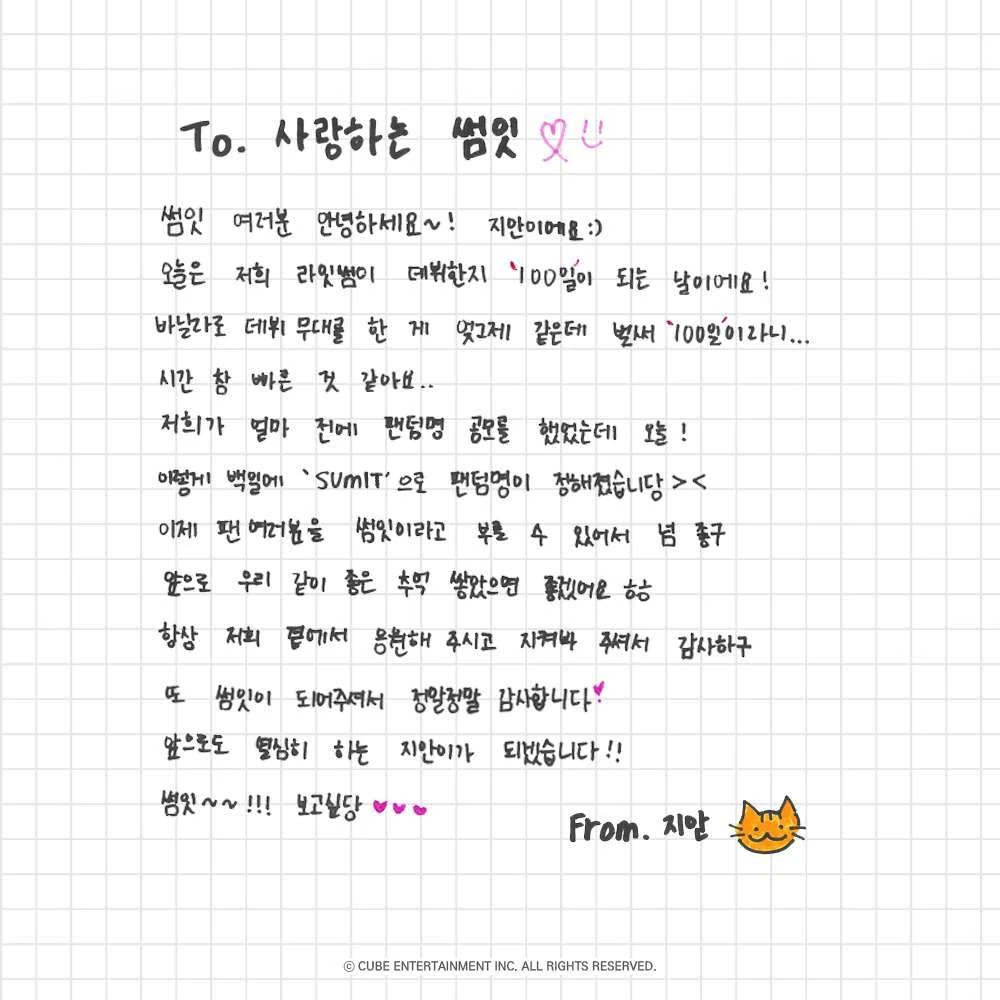 To. 사랑하는 썸잇
썸잇 여러분 안녕하세요~! 지안이에요:)
오늘은 저희 라잇썸이 데뷔한지 '100일'이 되는 날이에요!
바닐라로 데뷔 무대를 한 게 엊그제 같은데 벌써 '100일'이라니...
시간 참 빠른 것 같아요..
저희가 얼마 전에 팬덤명 공모를 했었는데 오늘!
이렇게 백일에 'SUMIT'으로 팬덤명이 정해졌습니당><
이제 팬 여러분을 썸잇이라고 부를 수 있어서 넘 좋구
앞으로 우리 같이 좋은 추억 쌓았으면 좋겠어요 ㅎㅎ
항상 저희 곁에서 응원해 주시고 지켜봐 주셔서 감사하구
또 썸잇이 되어주셔서 정말정말 감사합니다
앞으로도 열심히 하는 지안이가 되겠습니다!!
썸잇~~!!! 보고싶당
From. 지안
© CUBE ENTERTAINMENT INC. ALL RIGHTS RESERVED.